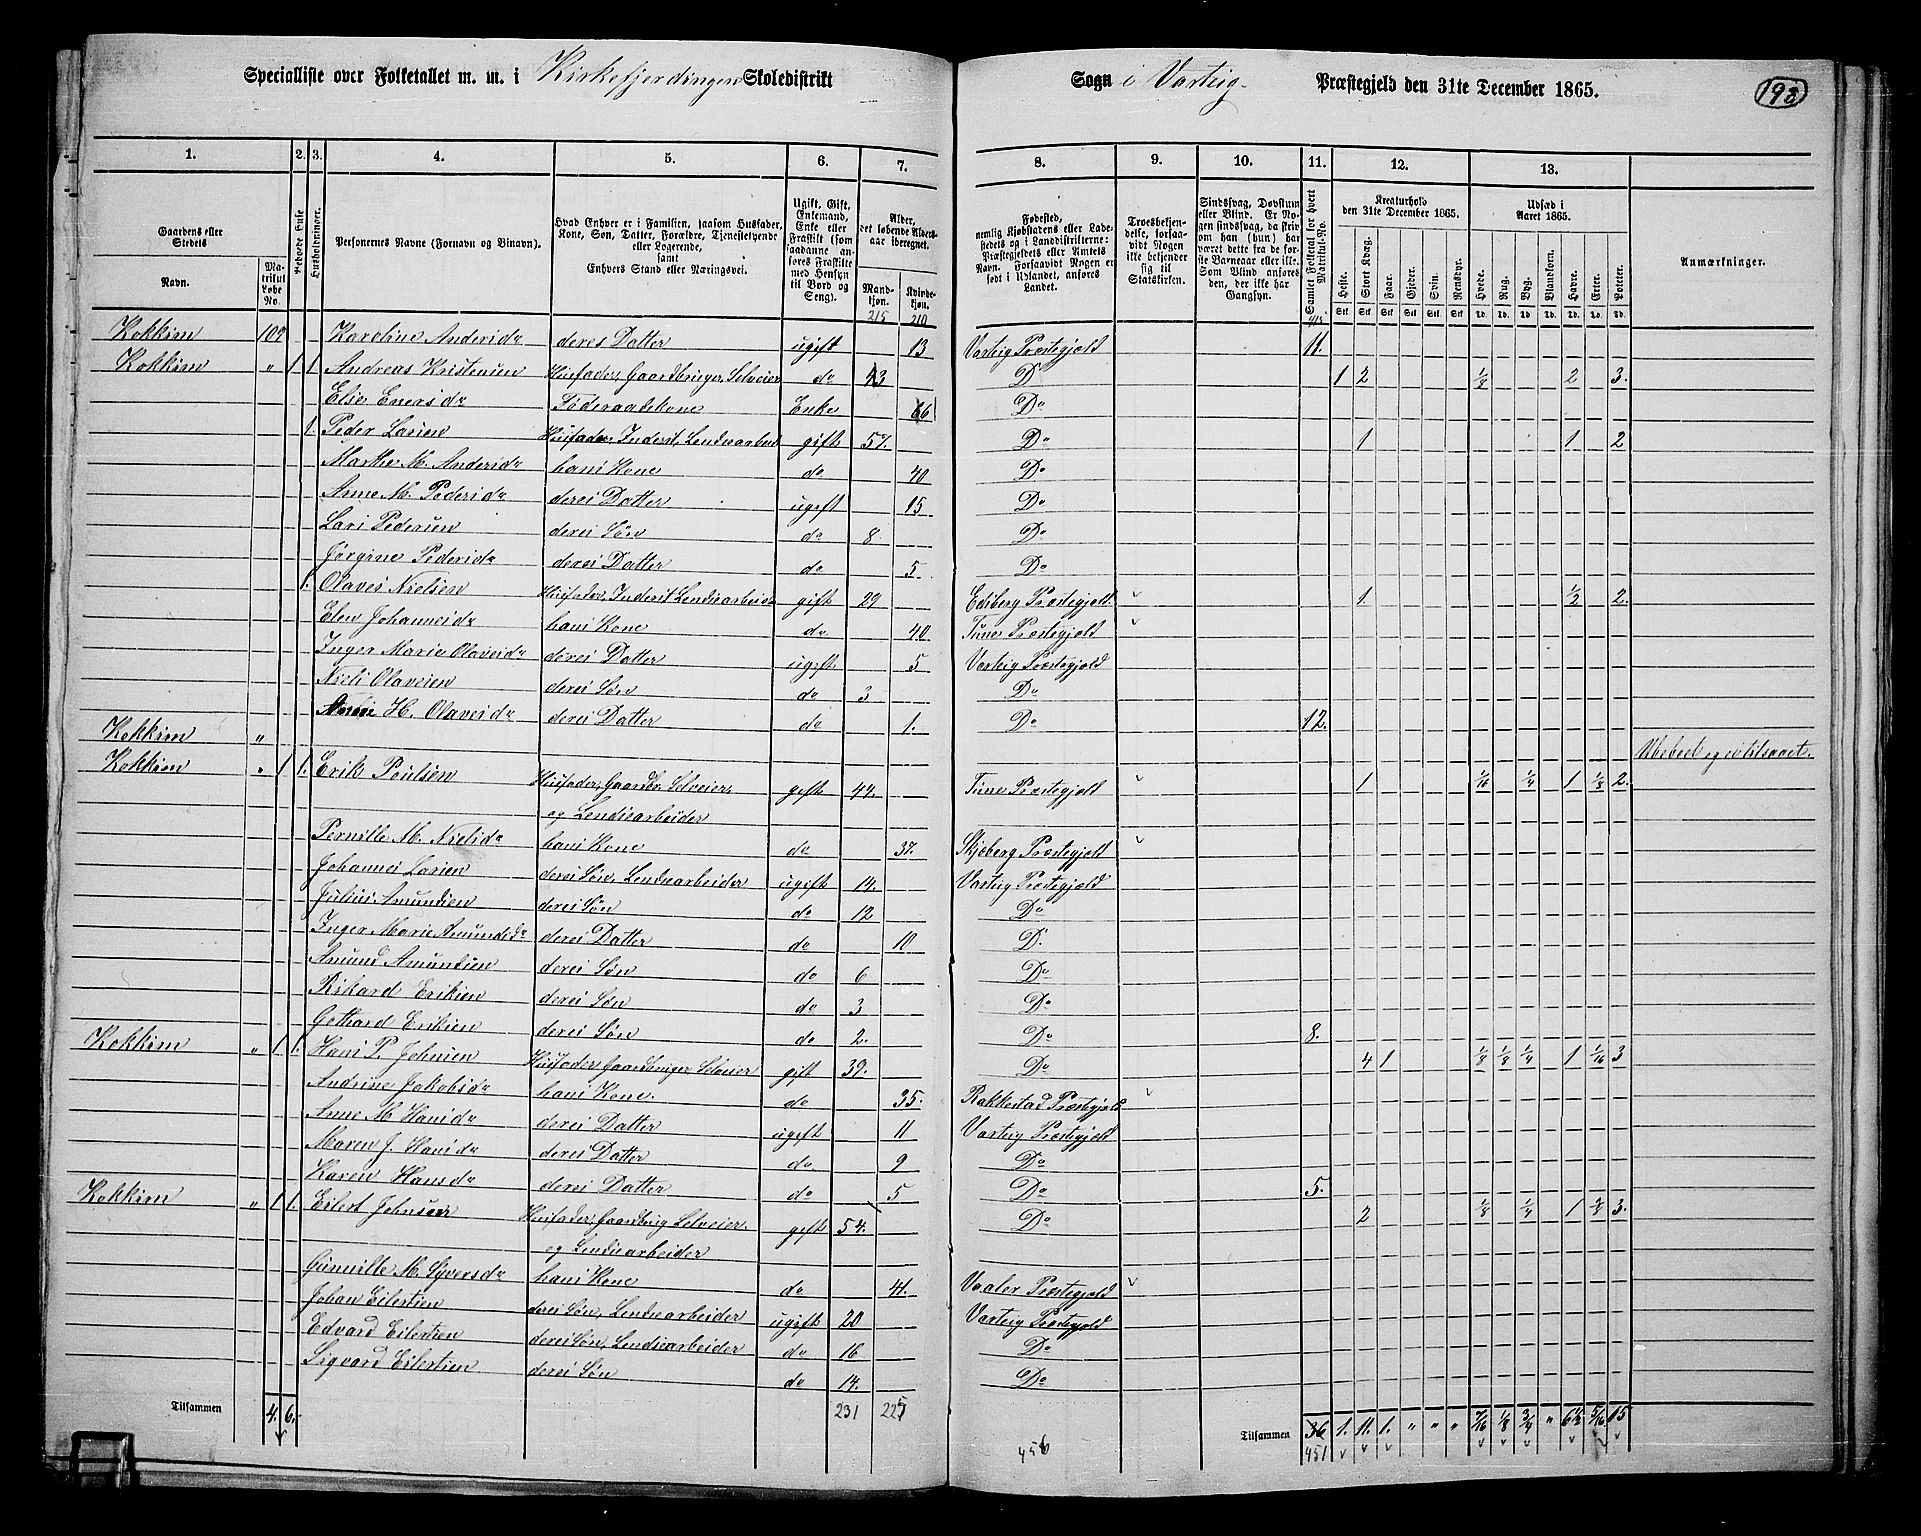 Specialliste over Folketallet m. m. i Kirkefjerdingen Skoledistrikt
Sogn i Varteig Præstegjeld den 31te December 1865.
193
1. 2. 3. 4. 5. 6. 7.
8. 9. 10. 11. 12. 13.
Gaardens eller Stedets
Navn.
Matrikul Løbe No.
Beboede Huse
Husholdninger.
Personernes Navne (Fornavn og Binavn).
Hvad Enhver er i Familien, saasom Husfader, Kone, Søn, Datter, Forældre, Tjenestetyende eller Logerende, samt Enhvers Stand eller Næringsvei.
Ugift, Gift, Enkemand, Enke eller Fraskilt (som saadanne anføres Fraskilte med Hensyn til Bord og Seng).
Alder, det løbende Aldersaar iberegnet.
Mandkjøn. Kvindekjøn.
215 210
Fødested, nemlig Kjøbstadens eller Ladestedets og i Landdistrikterne: Præstegjeldets eller Amtets Navn. Forsaavidt Nogen er født i Udlandet, anføres Landet.
Troesbekjendelse, forsaavidt Nogen ikke bekjender sig til Statskirken.
Sindssvag, Døvstum eller Blind. Er Nogen sindssvag, da skrives om han (hun) har været dette fra de første Barneaar eller ikke. Som Blind anføres den, der ikke har Gangsyn.
Samlet Folketal for hvert Matrikul-No.
Kreaturhold den 31te December 1865.
Heste. Stort Kvæg. Faar. Gjeder. Svin. Rensdyr.
Udsæd i Aaret 1865.
Hvede. Rug. Byg. Blandkorn. Havre. Erter. Poteter.
Anmærkninger.
415
Kokkim 109 Karoline Andersdr deres Datter ugift 13 Varteig Præstegjeld 11.
Kokkim " 1 1. Andreas Kristensen Husfader, Gaardbruger, Selveier do 43 Do 1 2 1/8 2 3.
Elie Eversdr Føderaadskone Enke 66 Do
1. Peder Larsen Husfader, Inderst, Landsearbeid gift 57. Do 1 1 2
Marthe M. Andersdr hans Kone do 40 Do
Anne M. Pedersdr deres Datter ugift 15 Do
Lars Pedersen deres Søn do 8 Do
Jørgine Pedersdr deres Datter do 5. Do
1. Olaves Nielsen Husfader, Inderst Landsearbeid gift 29 Edsberg Præstegjeld. 1. 1/2 2.
Elen Johannesdr hans Kone do 40 Tune Præstegjeld
Inger Marie Olavesdr deres Datter ugift 5 Varteig Præstegjeld
Niels Olavesen deres Søn do 3 Do
H. Olavesdr deres Datter do 1. Do 12.
Kokkim " Ubeboet og
Kokkim " 1 1. Erik Poulsen Husfader, Gaardbr, Selveier gift 47. Tune Præstegjeld 1 1/16 1/4 1 1/8 2.
og Landsearbeider
Pernille M. Nielsdr hans Kone do 37. Skjeberg Præstegjeld
Johannes Larsen deres Søn, Landsearbeider ugift 14. Varteig Præstegjeld
Julius Amundsen deres Søn do 12 Do
Inger Marie Amundsdr deres Datter do 10 D.
Amund Amundsen deres Søn do 6 Do
Rikard Eriksen deres Søn do 3 Do
Gothard Eriksen deres Søn do 2. Do 8.
Kokkim " 1. 1. Hans P. Johnsen Husfader, Gaardbruger, Selveier gift 39. Do 4 1 1/8 1/8 1/4 1 1/16 3
Andrine Jakobsdr hans Kone. do 35. Rakkestad Præstegjeld
Anne M. Hansdr deres Datter ugift 11 Varteig Præstegjeld
Maren J. Hansdr deres Datter do 9 Do
Karen Hansdr deres Datter do 5 Do 5.
Kokkim " 1 1. Eilert Johnsen Husfader, Gaardbrug Selveier. gift 54. Do 2 1/8 1/4 1 3.
og Landsearbeider
Gunnille M. Syversdr hans Kone do 41. Vaaler Præstegjeld
Johan Eilertsen deres Søn, Landsearbeider ugift 20 Varteig Præstegjeld
Edvard Eilertsen deres Søn, Landsearbeider do 16 Do
Sigvard Eilertsen deres Søn do 14. Do
Tilsammen 4. 6. 231 225
Tilsammen 36 1. 11. 1. " " " 7/16 1/8 3/4 " 6 1/2 5/16 15
456 451